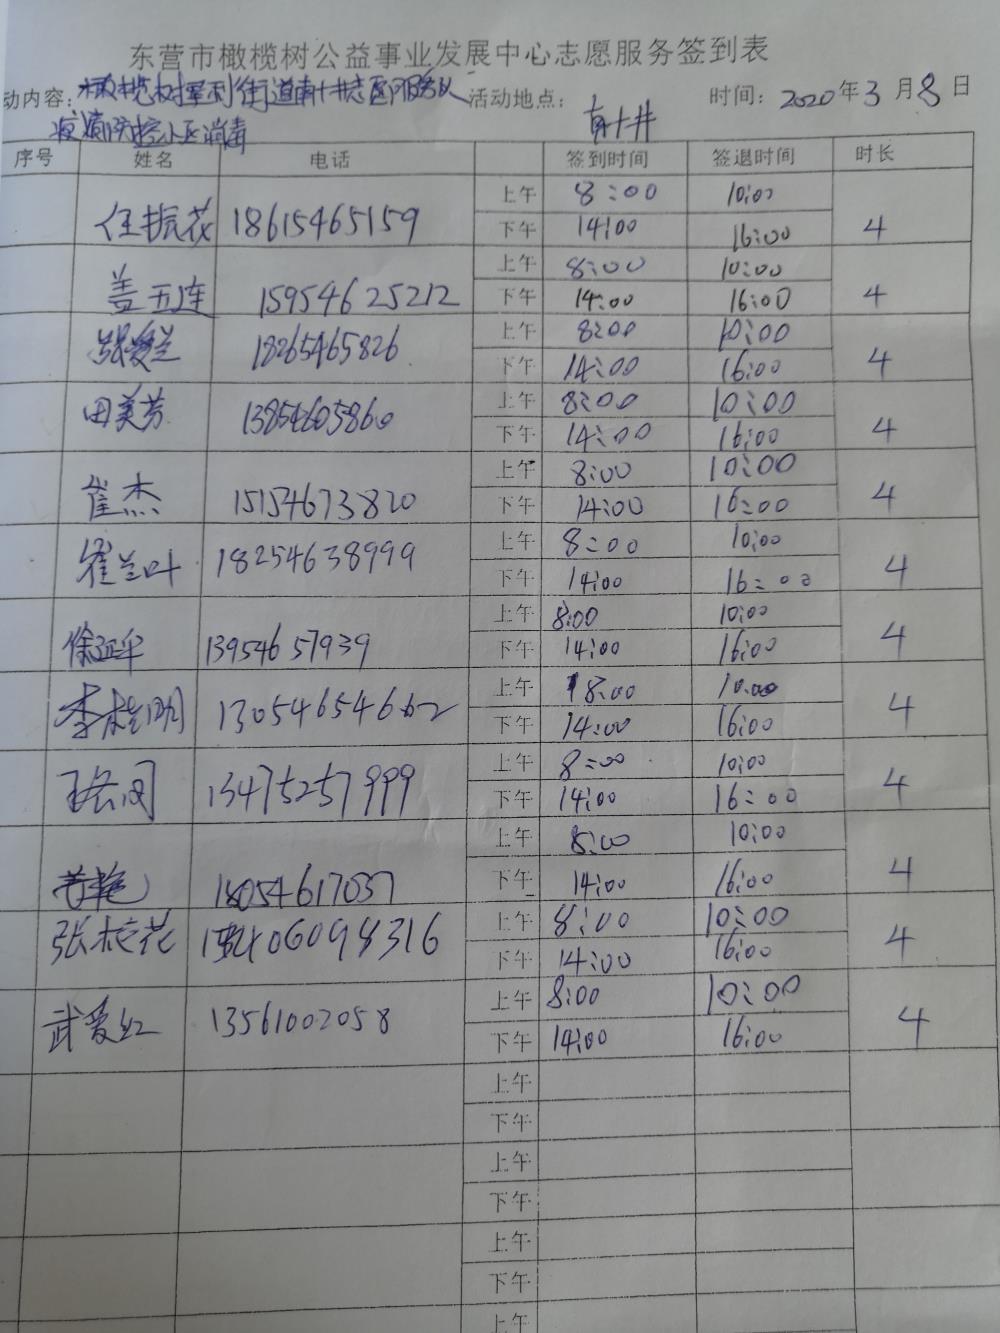 东营市橄榄树公益事业发展中心志愿服务签到表
动内容：橄榄树 街道南十井社区服务队 活动地点： 南十井 时间：2020年3月8日
疫情防控小区消毒
序号 姓名 电话 签到时间 签退时间 时长
任振花 18615465159 上午 8:00 10:00 4
下午 14:00 16:00
盖五连 15954625212 上午 8:00 10:00 4
下午 14:00 16:00
张爱兰 18265465826 上午 8:00 10:00 4
下午 14:00 16:00
田美芳 13854605860 上午 8:00 10:00 4
下午 14:00 16:00
崔杰 15154673820 上午 8:00 10:00 4
下午 14:00 16:00
翟兰叶 18254638999 上午 8:00 10:00 4
下午 14:00 16:00
徐延军 13954657939 上午 8:00 10:00 4
下午 14:00 16:00
李桂明 13054654662 上午 8:00 10:00 4
下午 14:00 16:00
13475257999 上午 8:00 10:00 4
下午 14:00 16:00
18054617037 上午 8:00 10:00 4
下午 14:00 16:00
张桂花 上午 8:00 10:00 4
下午 14:00 16:00
武爱红 13561002058 上午 8:00 10:00 4
下午 14:00 16:00
上午
下午
上午
下午
上午
下午
上午